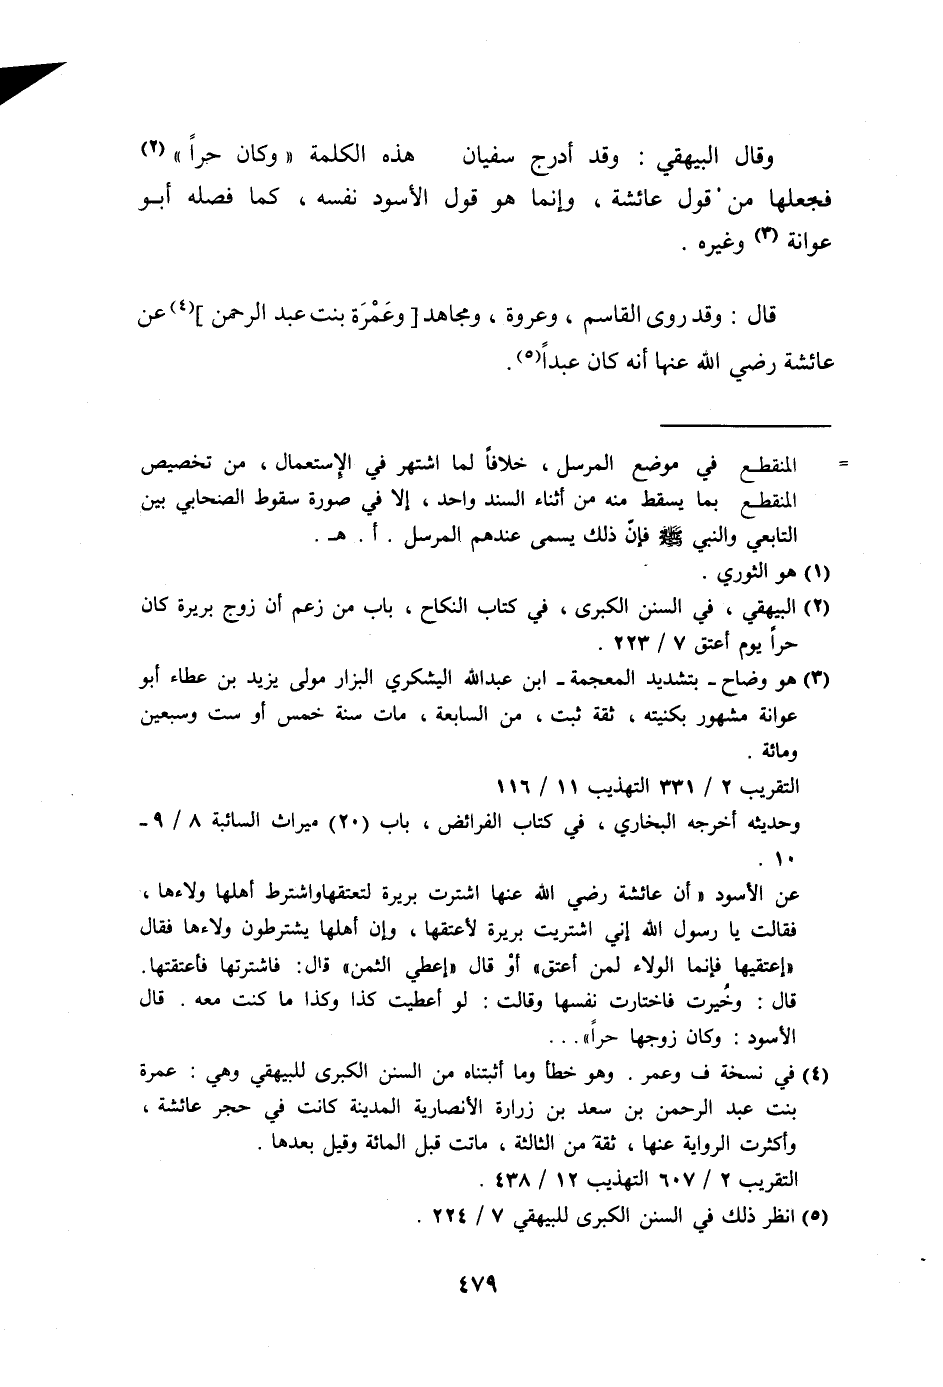 وقال البيهقي : وقد أدرج سفيان هذه الكلمة « وكان حراً » (٢)
فجعلها من قول عائشة ، وإنما هو قول الأسود نفسه ، كما فصله أبو
عوانة (٣) وغيره .
قال : وقد روى القاسم ، وعروة ، ومجاهد [ وعَمْرَة بنت عبد الرحمن ](٤) عن
عائشة رضي الله عنها أنه كان عبداً(٥) .
= المنقطع في موضع المرسل ، خلافاً لما اشتهر في الإستعمال ، من تخصيص
المنقطع بما يسقط منه من أثناء السند واحد ، إلا في صورة سقوط الصحابي بين
التابعي والنبي ﷺ فإنّ ذلك يسمى عندهم المرسل . أ . هـ .
(١) هو الثوري .
(٢) البيهقي ، في السنن الكبرى ، في كتاب النكاح ، باب من زعم أن زوج بريرة كان
حراً يوم أعتق ٧ / ٢٢٣ .
(٣) هو وضاح ـ بتشديد المعجمة ـ ابن عبدالله اليشكري البزار مولى يزيد بن عطاء أبو
عوانة مشهور بكنيته ، ثقة ثبت ، من السابعة ، مات سنة خمس أو ست وسبعين
ومائة .
التقريب ٢ / ٣٣١ التهذيب ١١ / ١١٦
وحديثه أخرجه البخاري ، في كتاب الفرائض ، باب (٢٠) ميراث السائبة ٨ / ٩ ـ
١٠ .
عن الأسود « أن عائشة رضي الله عنها اشترت بريرة لتعتقهاواشترط أهلها ولاءها ،
فقالت يا رسول الله إني اشتريت بريرة لأعتقها ، وإن أهلها يشترطون ولاءها فقال
«إعتقيها فإنما الولاء لمن أعتق» أوْ قال «إعطي الثمن» قال: فاشترتها فأعتقتها.
قال : وخُيرت فاختارت نفسها وقالت : لو أعطيت كذا وكذا ما كنت معه . قال
الأسود : وكان زوجها حراً» . . .
(٤) في نسخة ف وعمر . وهو خطأ وما أثبتناه من السنن الكبرى للبيهقي وهي : عمرة
بنت عبد الرحمن بن سعد بن زرارة الأنصارية المدينة كانت في حجر عائشة ،
وأكثرت الرواية عنها ، ثقة من الثالثة ، ماتت قبل المائة وقيل بعدها .
التقريب ٢ / ٦٠٧ التهذيب ١٢ / ٤٣٨ .
(٥) انظر ذلك في السنن الكبرى للبيهقي ٧ / ٢٢٤ .
٤٧٩